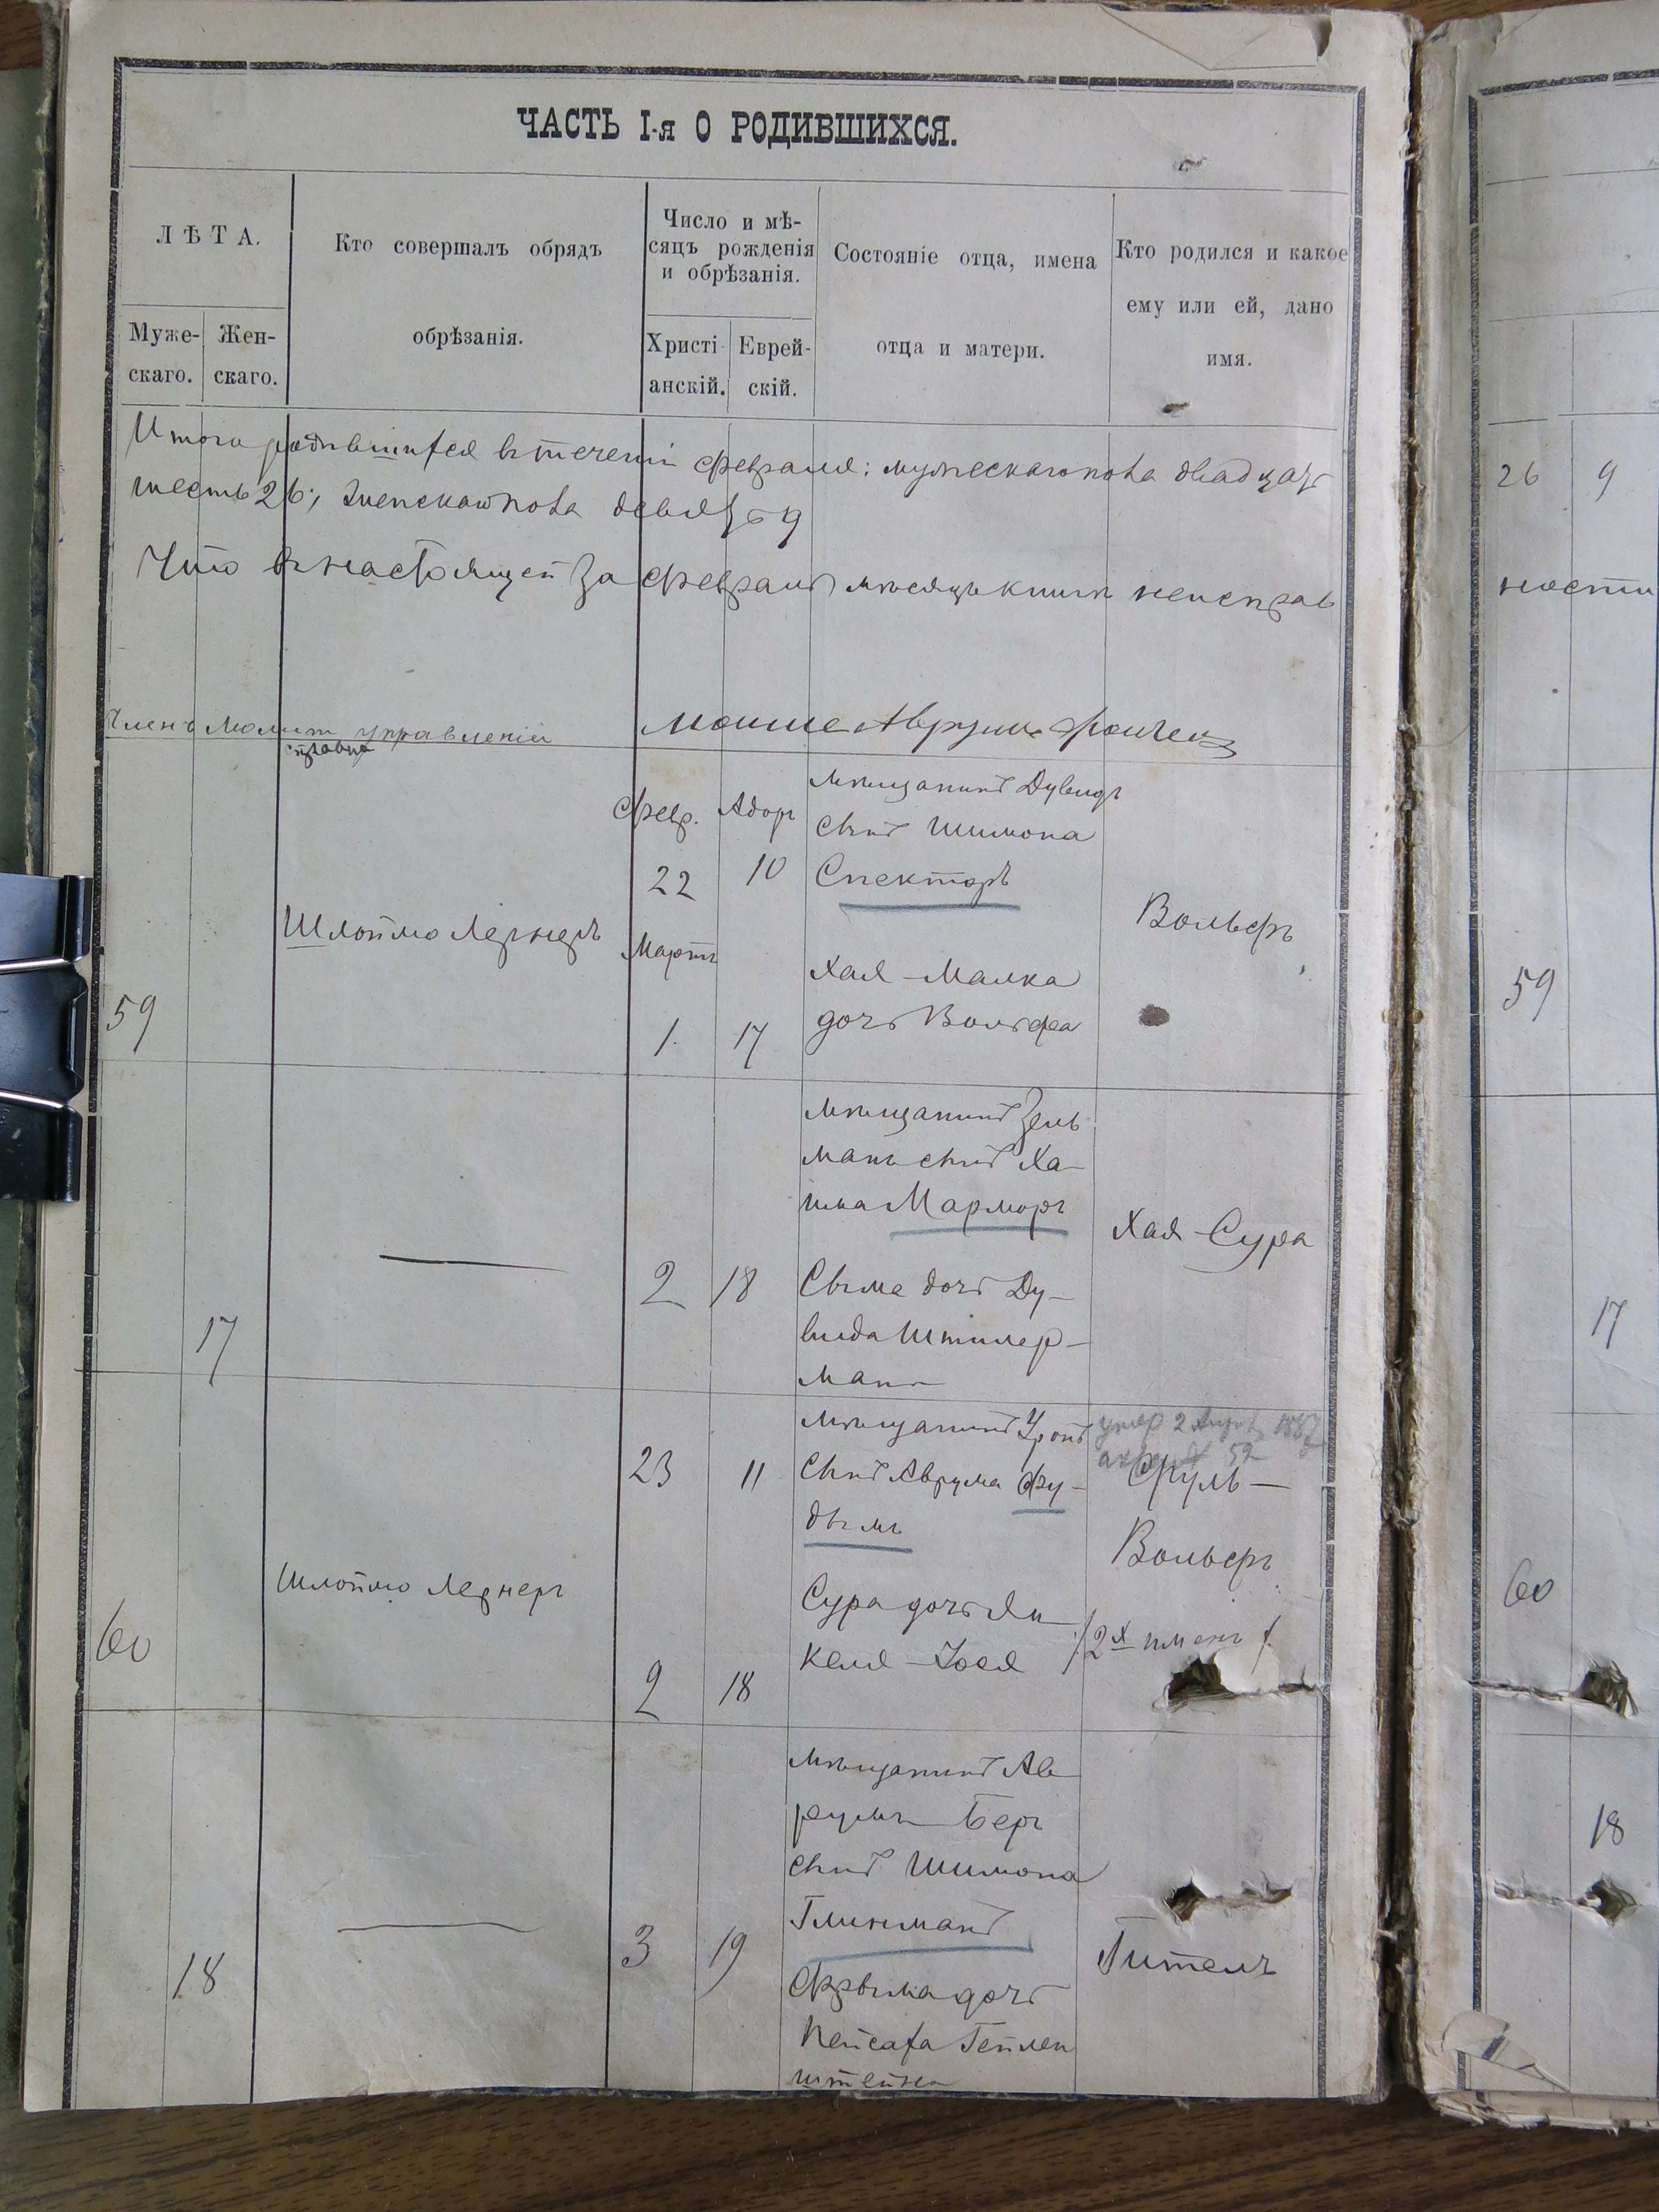 ЧАСТЬ I-я О РОДИВШИХСЯ.
ЛѢТА.
Муже-
скаго.
Жен-
скаго.
Кто совершалъ обрядъ
обрѣзанія.
Число и мѣ-
сяцъ рожденія
и обрѣзанія.
Христі
анскій.
Еврей-
скій.
Состояніе отца, имена
отца и матери.
Кто родился и какое
ему или ей, дано
имя.
Итого родившихся втеченіи февраля: мужескаго пола двадцать
шесть 26; женскаго пола девять 9
26 9
Что внастоящей за февраль мѣсяцъ книги неисправ
ности
Членъ Молит управленій
Моише Аврумъ
59
Шлоймо Лернеръ
Февр. Адоръ
22 10
Мартъ
1. 17
мѣщанинъ Дувидъ
сынъ Шимона
Спекторъ
Хая-Малка
дочь Вольфа
Вольфъ
59
17
2 18
мѣщанинъ Зель
манъ сынъ Ха-
има Марморъ
Сыма дочь Ду-
вида Штилер-
манъ
Хая-Сура
17
60
Шлоймо Лернеръ
23 11
2 18
мѣщанинъ Уронъ
сынъ Аврума Фу-
дымъ
Сура дочь Ян
келя-Іося
умер 2 1887
52
Сруль-
Вольфъ
/2х именъ/
60
18
3 19
мѣщанинъ Ав
румъ Беръ
сынъ Шимона
Глинманъ
Фрыма дочь
Пейсаха Геллен
штейна
Гитель
18